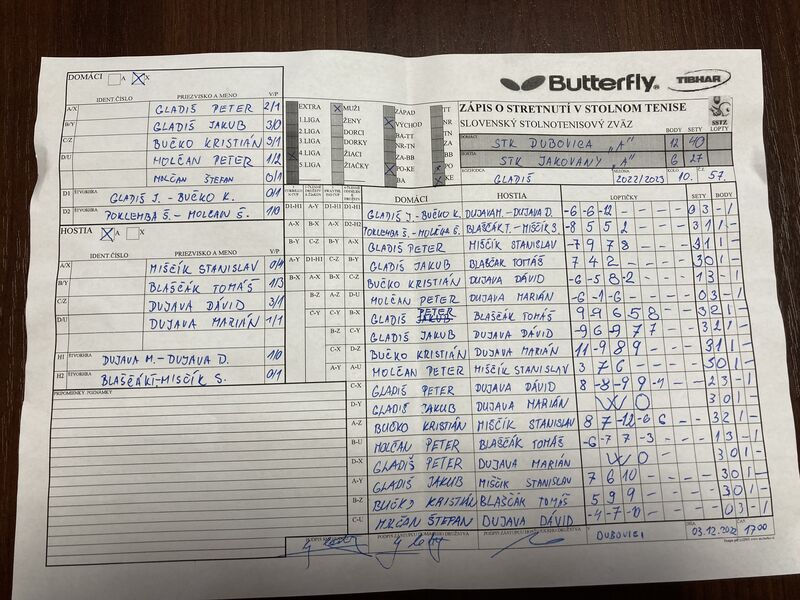 DOMÁCI A X
IDENT.ČÍSLO PRIEZVISKO A MENO V/P
A/X GLADIŠ PETER 2/1
B/Y GLADIŠ JAKUB 3/0
C/Z BUČKO KRISTIÁN 3/1
D/U MOLČAN PETER 1/2
MOLČAN ŠTEFAN 0/1
D1 ŠTVORHRA GLADIŠ J. - BUČKO K. 0/1
D2 ŠTVORHRA POKLEMBA Š. - MOLČAN Š. 1/0
HOSTIA A X
IDENT.ČÍSLO PRIEZVISKO A MENO V/P
A/X MIŠČÍK STANISLAV
B/Y BLAŠČÁK TOMÁŠ 1/3
C/Z DUJAVA DÁVID 3/1
D/U DUJAVA MARIÁN 1/1
H1 ŠTVORHRA DUJAVA M. - DUJAVA D. 1/0
H2 ŠTVORHRA BLAŠČÁK T. - MIŠČÍK S. 0/1
PRIPOMIENKY, POZNÁMKY
Butterfly TIBHAR
ZÁPIS O STRETNUTÍ V STOLNOM TENISE
SLOVENSKÝ STOLNOTENISOVÝ ZVÄZ
SSTZ
EXTRA MUŽI ZÁPAD TT
1.LIGA ŽENY VÝCHOD NR
2.LIGA DORCI BA-TT TN
3.LIGA DORKY NR-TN ZA
4.LIGA ŽIACI ZA-BB BB
5.LIGA ŽIAČKY PO-KE PO
BA KE
DOMÁCI STK DUBOVICA „A" BODY 12 SETY 40 LOPTY
HOSTIA STK JAKOVANY „A" 6 27
ROZHODCA GLADIŠ SEZÓNA 2022/2023 KOLO 10. Č.Z. 57.
DOMÁCI HOSTIA LOPTIČKY SETY BODY
D1-H1 GLADIŠ J. - BUČKO K. DUJAVA M. - DUJAVA D. -6 -6 -12 - - 0 3 - 1
D2-H2 POKLEMBA Š. - MOLČAN Š. BLAŠČÁK T. - MIŠČÍK S. -8 5 5 2 - 3 1 1 -
A-X GLADIŠ PETER MIŠČÍK STANISLAV -7 9 7 8 - 3 1 1 -
B-Y GLADIŠ JAKUB BLAŠČÁK TOMÁŠ 7 4 2 - - 3 0 1 -
C-Z BUČKO KRISTIÁN DUJAVA DÁVID -6 -5 8 -2 - 1 3 - 1
D-U MOLČAN PETER DUJAVA MARIÁN -6 -1 -6 - - 0 3 - 1
B-X GLADIŠ PETER BLAŠČÁK TOMÁŠ 3 2 1 -
GLADIŠ JAKUB DUJAVA DÁVID -9 6 -9 7 7 3 2 1 -
BUČKO KRISTIÁN DUJAVA MARIÁN 11 -9 8 9 - 3 1 1 -
A-U MOLČAN PETER MIŠČÍK STANISLAV 3 7 6 - - 3 0 1 -
C-X GLADIŠ PETER DUJAVA DÁVID 2 3 - 1
D-Y GLADIŠ JAKUB DUJAVA MARIÁN WO 3 0 1 -
A-Z BUČKO KRISTIÁN MIŠČÍK STANISLAV 8 7 -12 -6 6 3 2 1 -
B-U MOLČAN PETER BLAŠČÁK TOMÁŠ -6 -7 7 -3 - 1 3 - 1
D-X GLADIŠ PETER DUJAVA MARIÁN WO 3 0 1 -
A-Y GLADIŠ JAKUB MIŠČÍK STANISLAV 7 6 10 - - 3 0 1 -
B-Z BUČKO KRISTIÁN BLAŠČÁK TOMÁŠ 5 9 9 - - 3 0 1 -
C-U MOLČAN ŠTEFAN DUJAVA DÁVID -4 -7 -10 - - 0 3 - 1
V DUBOVICI DŇA 03.12.2022 ČAS 17 00